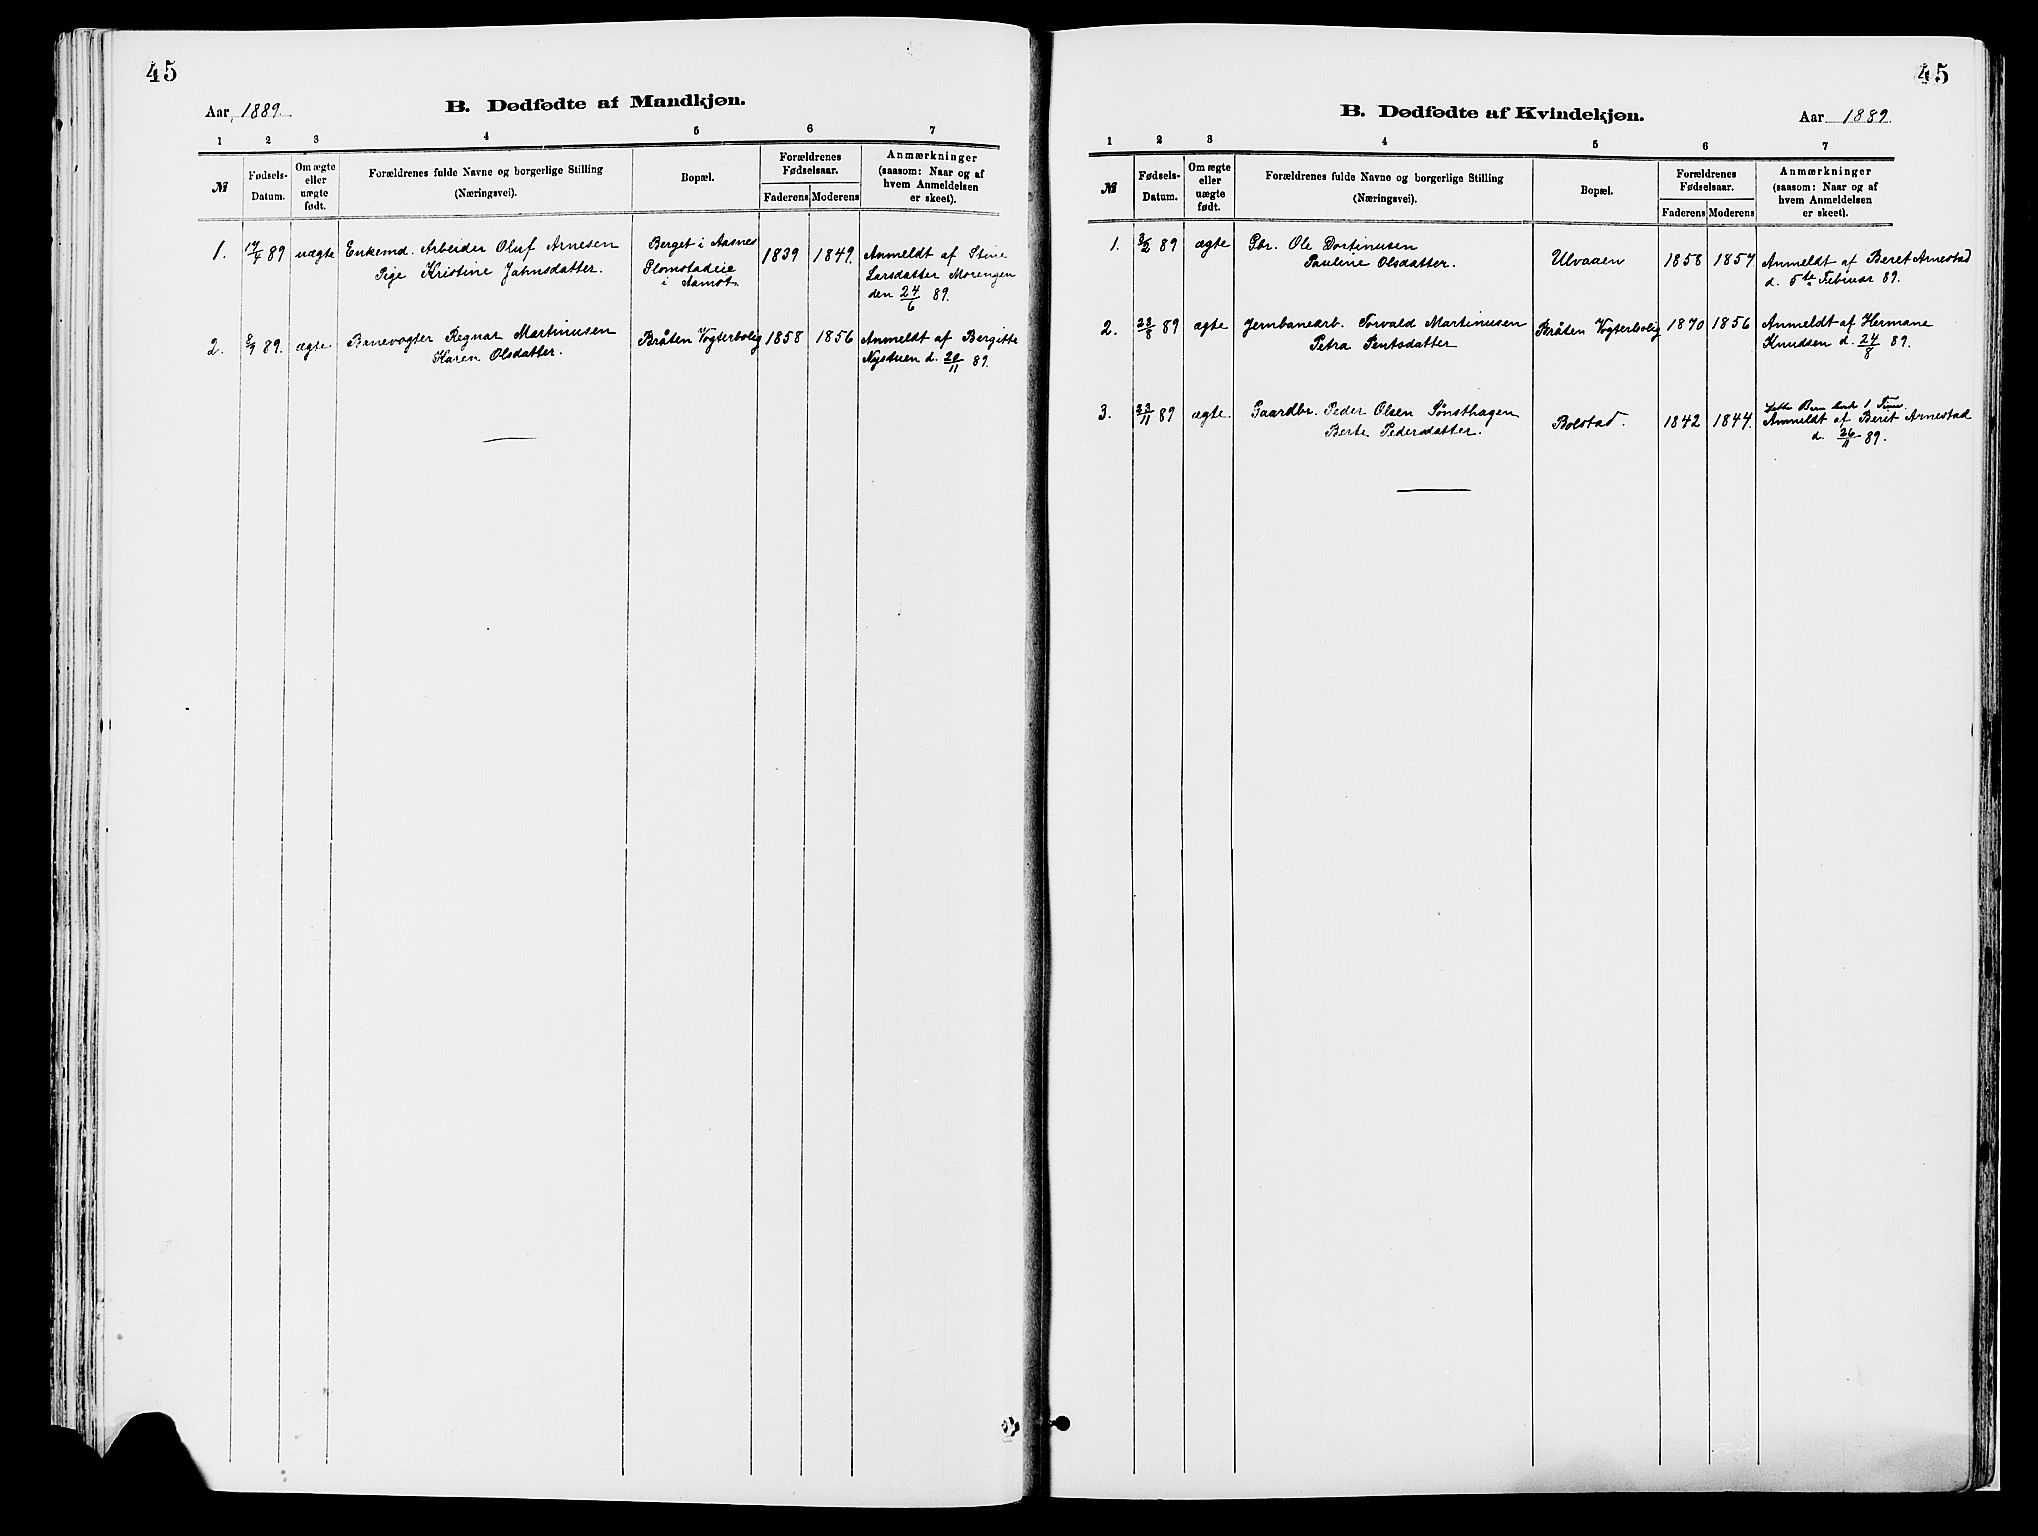 45
Aar 1889.
B. Dødfødte af Mandkjøn.
1 2 3 4 5 6 7
№
Fødsels-
Datum.
Om ægte
eller
uægte
født.
Forældrenes fulde Navne og borgerlige Stilling
(Næringsvei).
Bopæl.
Forældrenes
Fødselsaar.
Faderens Moderens
Anmærkninger
(saasom: Naar og af
hvem Anmeldelsen
er skeet).
1. 17/4 89 uægte Enkemd. Arbeider Oluf Arnesen Berget i Aasnes 1839 1849. Anmeldt af Stine
Pige Kristine Jahnsdatter. Plomstadeie Larsdatter Morengen
i Aamot. den 24/6 89.
2. 89. ægte Banevogter Regnar Martinusen Bråten Vogterbolig 1858 1856 Anmeldt af Bergitte
Karen Olsdatter. Nystuen d. 20/11 89.
45
B. Dødfødte af Kvindekjøn.
Aar 1889.
1 2 3 4 5 6 7
№
Fødsels-
Datum.
Om ægte
eller
uægte
født.
Forældrenes fulde Navne og borgerlige Stilling
(Næringsvei).
Bopæl.
Forældrenes
Fødselsaar.
Faderens Moderens
Anmærkninger
(saasom: Naar og af
hvem Anmeldelsen
er skeet).
1. 3/2 89 ægte Gbr. Ole Dortinusen Ulvaaen 1858 1857 Anmeldt af Beret Arnestad
Pauline Olsdatter. d. 5te Februar 89.
2. 23/8 89 ægte Jernbanearb. Torvald Martinusen Bråten Vogterbolig 1870 1856 Anmeldt af Hermane
Petra Pentsdatter Knudsen d. 24/8 89.
3. 23/11 89 ægte. Gaardbr. Peder Olsen Sønsthagen Bolstad. 1842 1844. Dette Barn 1
Berte Pedersdatter. Anmeldt af Beret Arnestad
d. 26/11 89.